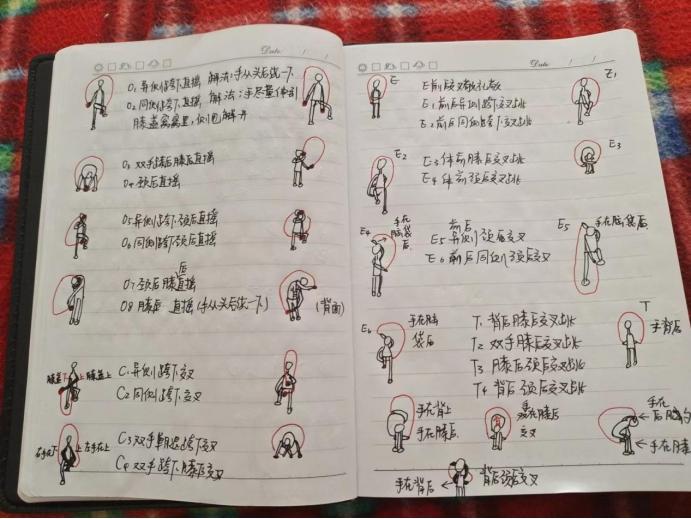 Date / /
O₁ 异侧胯下直摇 解法:手从头后绕一下
O₂ 同侧胯下直摇 解法:手尽量伸到
膝盖窝窝里,侧甩解开
O₃ 双手膝后直摇
O₄ 颈后直摇
O₅ 异侧胯下颈后直摇
O₆ 同侧胯下颈后直摇
O₇ 颈后膝后直摇
O₈ 膝后 直摇(手从头后绕一下)
(背面)
膝盖下 膝盖上
C₁ 异侧胯下交叉
C₂ 同侧胯下交叉
右手在下 左手在上
C₃ 双手胯下交叉
C₄ 双手胯下膝后交叉
Date / /
E
E 前后交叉
E₁ 前后异侧胯下交叉跳
E₂ 前后同侧胯下交叉跳
E₁
E₂
E₃ 体前膝后交叉跳
E₄ 体前颈后交叉跳
E₃
E₄
手在脑袋后
前后
E₅ 异侧颈后交叉
E₆ 前后同侧颈后交叉
E₅
手在脑袋后
E₆
手在脑袋后
T₁ 背后膝后交叉跳
T₂ 双手膝后交叉跳
T₃ 膝后颈后交叉跳
T₄ 背后颈后交叉跳
T
手背后
手在背上
手在膝后
手在膝后
交叉
手在
手在膝后
手在背后
背后颈后交叉